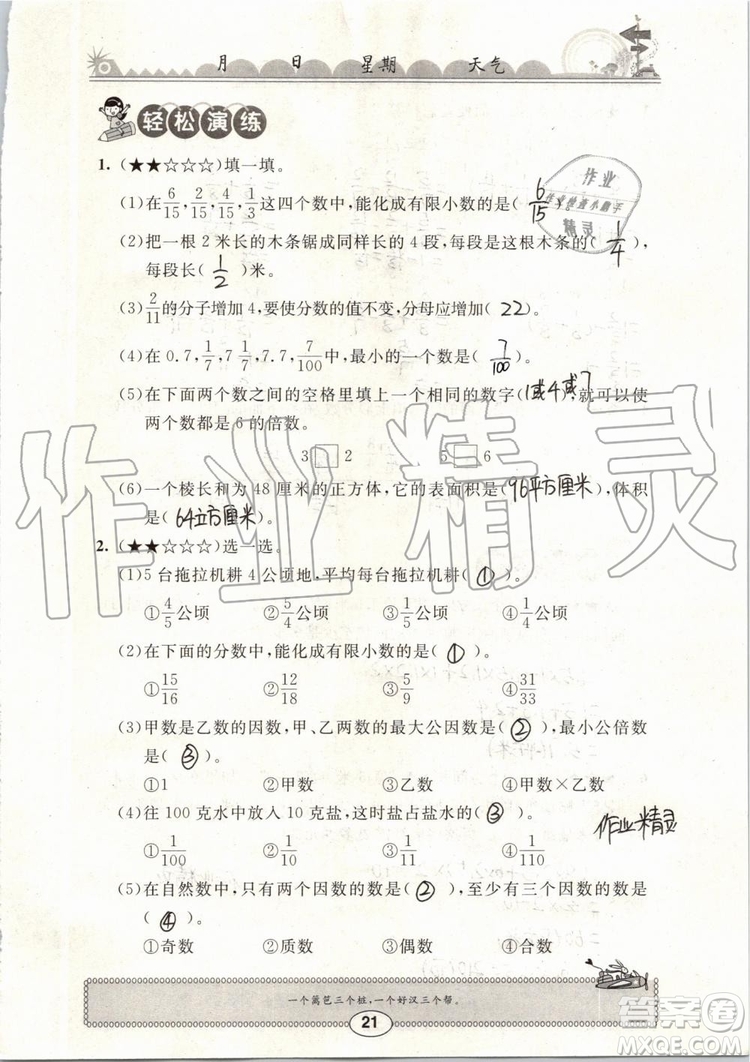 月 日 星期 天气
轻松演练
1. (★★☆☆☆)填一填。
(1)在6/15,2/15,4/15,1/3这四个数中,能化成有限小数的是( 6/15
作业
精灵
(2)把一根2米长的木条锯成同样长的4段,每段是这根木条的( 1/4 ),
每段长( 1/2 )米。
(3)2/11的分子增加4,要使分数的值不变,分母应增加( 22 )。
(4)在0.7,1/7,7/7,7.7,7/100中,最小的一个数是( 7/100 )。
(5)在下面两个数之间的空格里填上一个相同的数字(1或4或7),就可以使
两个数都是6的倍数。
3□2 5□6
(6)一个棱长和为48厘米的正方体,它的表面积是(96平方厘米),体积
是(64立方厘米)。
2. (★★☆☆☆)选一选。
(1)5台拖拉机耕4公顷地,平均每台拖拉机耕( ① )。
①4/5公顷 ②5/4公顷 ③1/5公顷 ④1/4公顷
(2)在下面的分数中,能化成有限小数的是( ① )。
①15/16 ②12/18 ③5/9 ④31/33
(3)甲数是乙数的因数,甲、乙两数的最大公因数是( ② ),最小公倍数
是( ③ )。
①1 ②甲数 ③乙数 ④甲数×乙数
(4)往100克水中放入10克盐,这时盐占盐水的( ③ )。
①1/100 ②1/10 ③1/11 ④1/110
作业精灵
(5)在自然数中,只有两个因数的数是( ② ),至少有三个因数的数是
( ④ )。
①奇数 ②质数 ③偶数 ④合数
一个篱笆三个桩,一个好汉三个帮。
21
作业精灵
答案圈
MXQE.COM